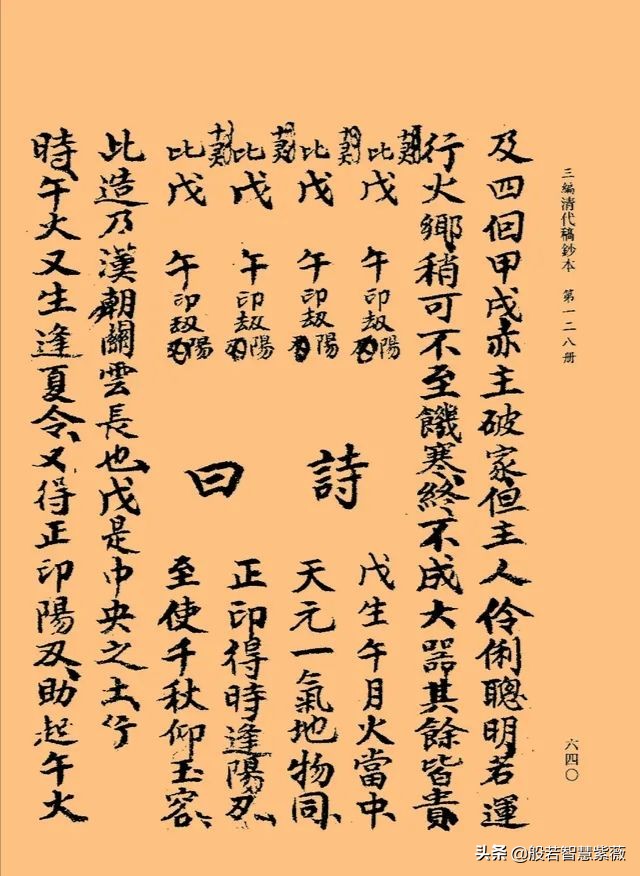 三編清代稿鈔本 第一二八册
六四〇
及四個甲戌亦主破家但主人伶俐聰明若運
行火鄉稍可不至饑寒終不成大器其餘皆貴
比戊 午印刼陽刃
比戊 午印刼陽刃
比戊 午印刼陽刃
比戊 午印刼陽刃
詩曰
戊生午月火當中
天元一氣地物同
正印得時逢陽刃
至使千秋仰玉容
此造乃漢朝關雲長也戊是中央之土
時午火又生逢夏令又得正印陽刃助起午火
头条 @般若智慧紫薇